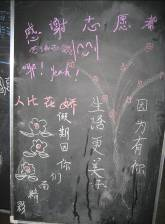 感谢志愿者
耶！Yeah！
人比花娇
假期因你们而精彩
生活更美好
因为有你